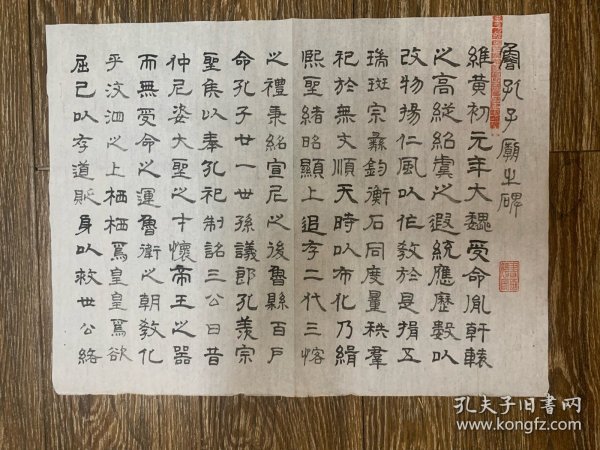 魯孔子廟之碑
維黃初元年大魏受命胤軒轅
之高縱紹虞之遐統應歷數以
改物揚仁風以作教於是揖五
瑞斑宗彝鈞衡石同度量秩羣
祀於無文順天時以布化乃緝
熙聖緒昭顯上追存二代三恪
之禮秉紹宣尼之後魯縣百戶
命孔子廿一世孫議郎孔羨宗
聖侯以奉孔祀制詔三公曰昔
仲尼姿大聖之才懷帝王之器
而無受命之運魯衛之朝教化
乎汶泗之上栖栖焉皇皇焉欲
屈己以存道貶身以救世公絡
孔夫子旧书网
www.kongfz.com